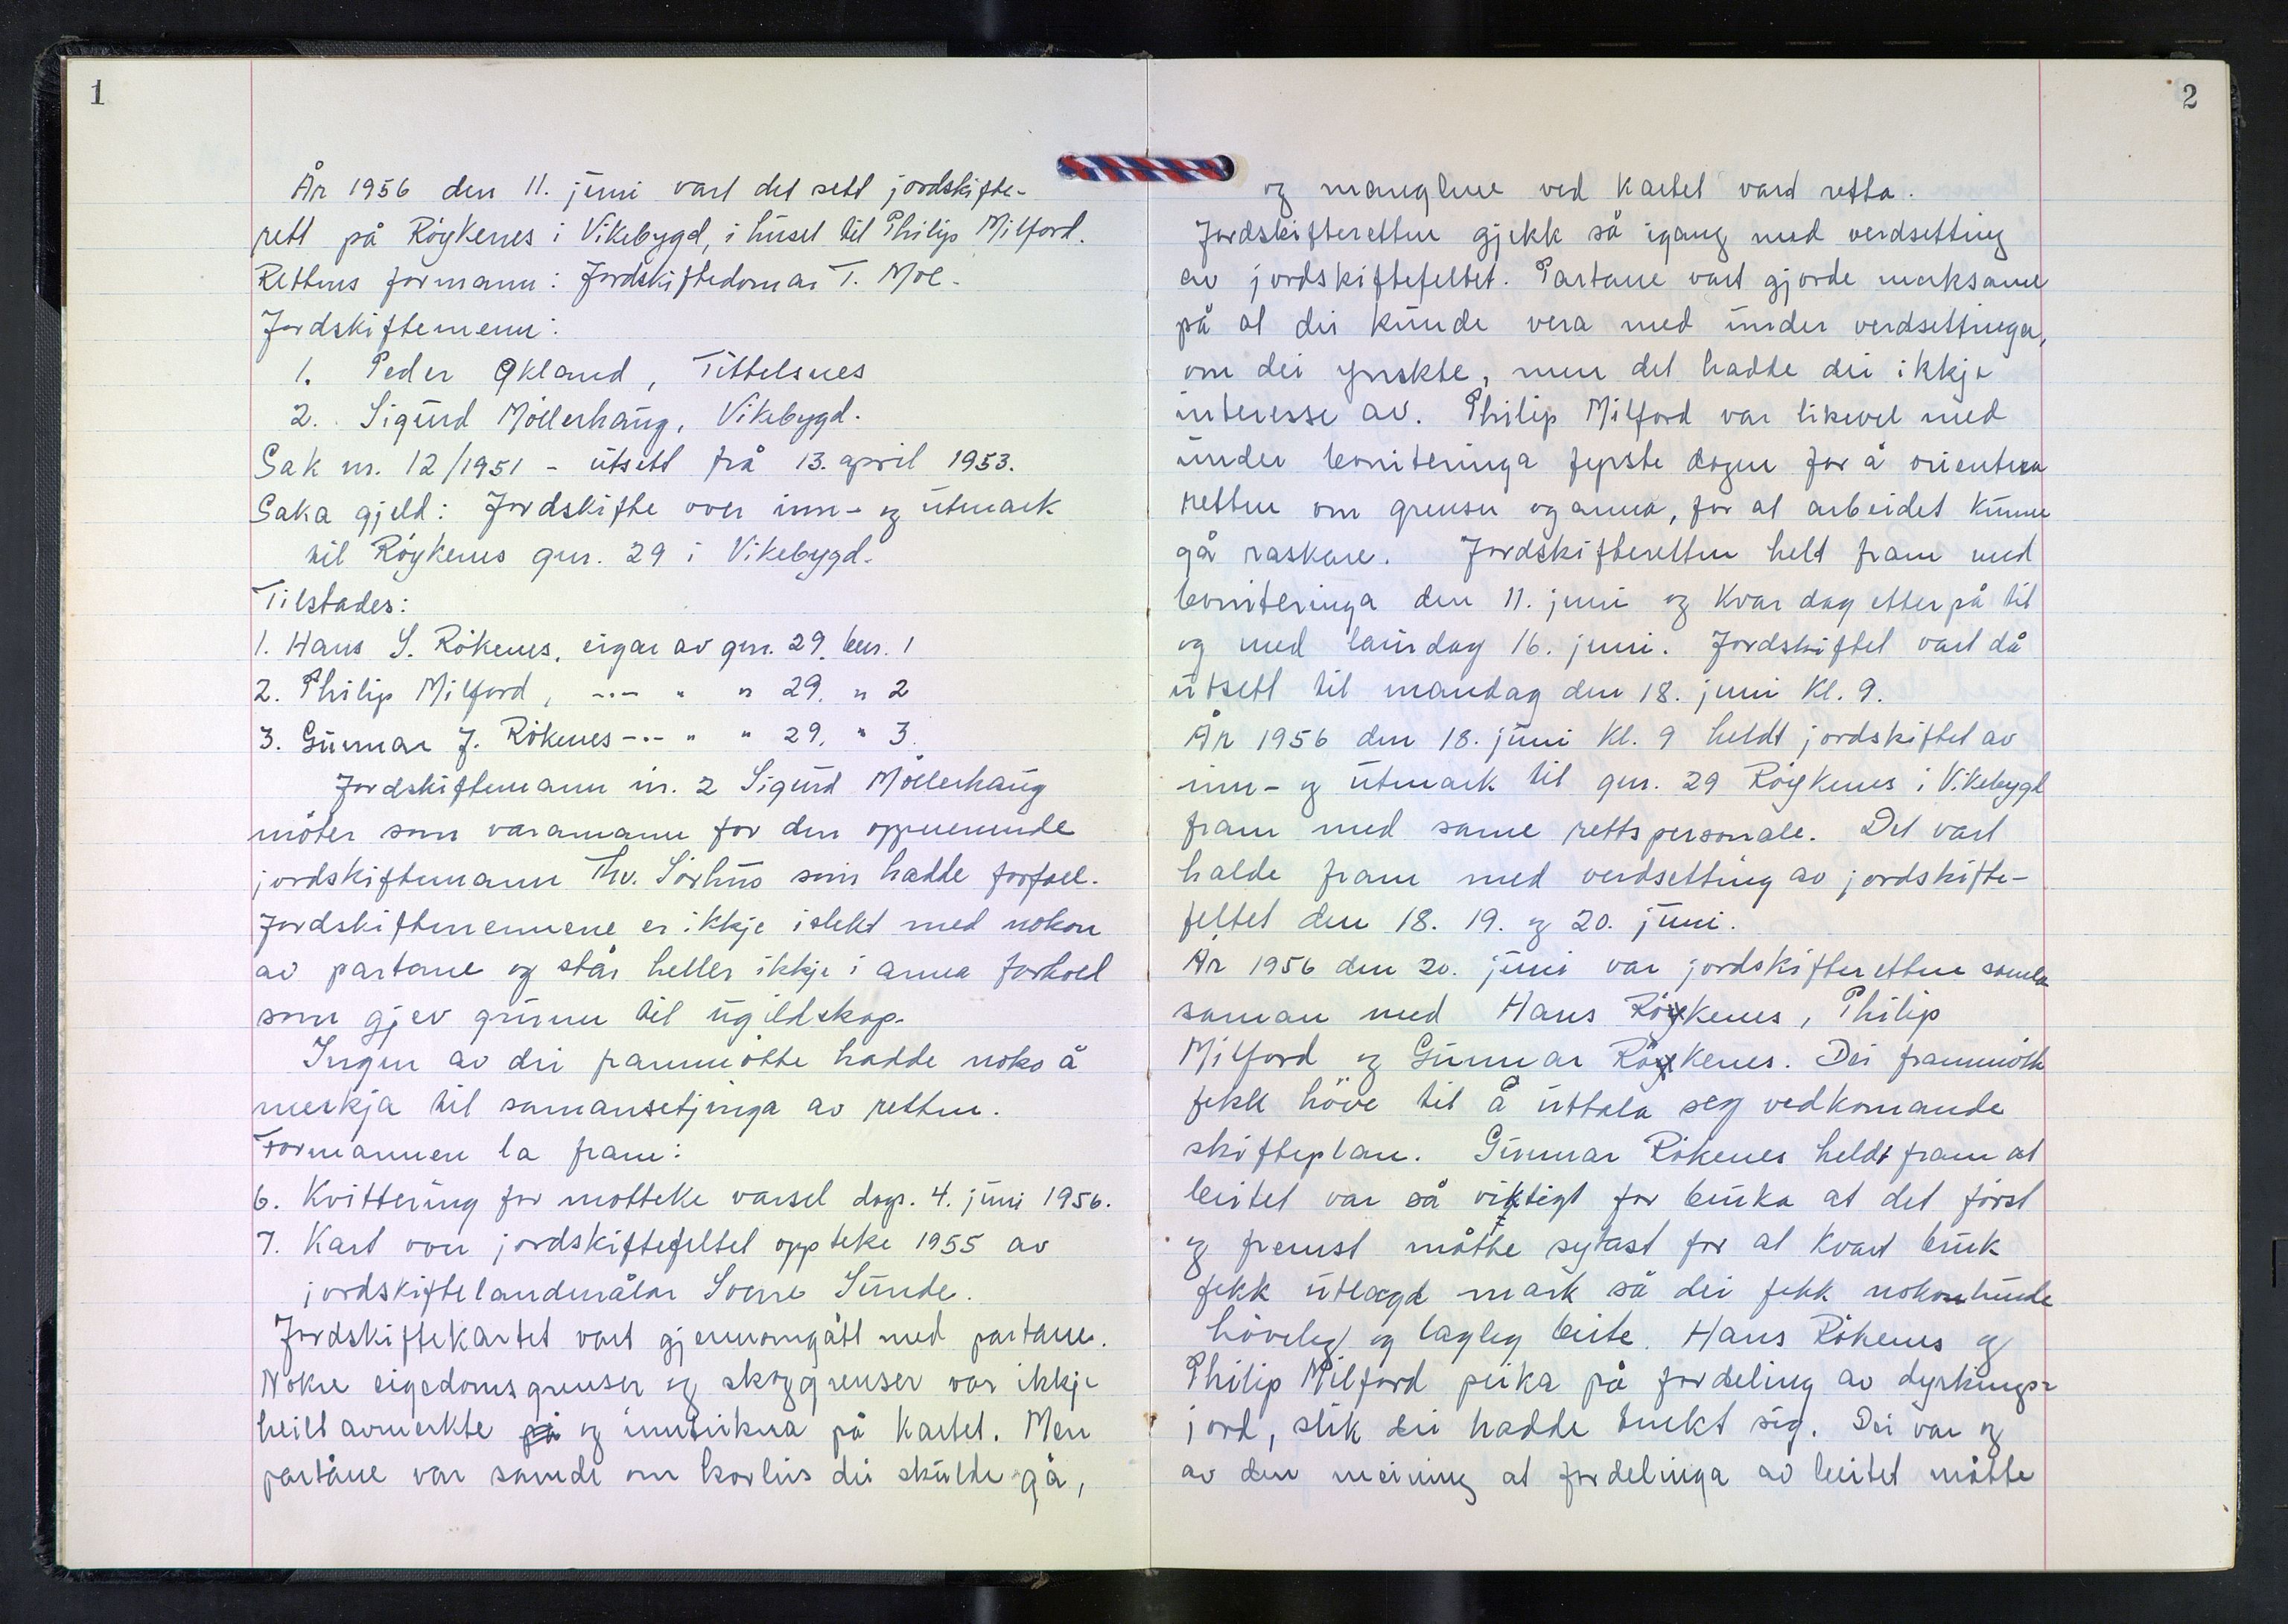 1
År 1956 den 11. juni vart det sett jordskifte-
rett på Röykenes i Vikebygd, i huset til Philip Milford.
Rettens formann: Jordskiftedomar T. Moe.
Jordskiftemenn:
1. Peder Økland, Tittelsnes
2. Sigurd Möllerhaug, Vikebygd.
Sak nr. 12/1951 - utsett frå 13. april 1953.
Saka gjeld: Jordskifte over inn- og utmark
til Röykenes gnr. 29 i Vikebygd.
Tilstades:
1. Hans S. Rökenes, eigar av gnr. 29. bnr. 1
2. Philip Milford, -"- " " 29. " 2
3. Gunnar J. Rökenes -"- " " 29. " 3.
Jordskiftemann nr. 2 Sigurd Möllerhaug
möter som varamann for den oppnemnde
jordskiftemann Thv. Sörhus som hadde forfall.
Jordskiftemennene er ikkje i slekt med nokon
av partane og står heller ikkje i anna forhold
som gjev grunn til ugildskap.
Ingen av dei frammötte hadde noko å
merkja til samansetjinga av retten.
Formannen la fram:
6. Kvittering for motteke varsel dags. 4. juni 1956.
7. Kart over jordskiftefeltet oppteke 1955 av
jordskiftelandmålar Sverre Sunde.
Jordskiftekartet vart gjennomgått med partane.
Nokre eigedomsgrenser og skoggrenser var ikkje
heilt avmerkte på og innteikna på kartet. Men
partane var samde om korleis dei skulde gå,
2
og manglene ved kartet vard retta.
Jordskifteretten gjekk så igang med verdsetting
av jordskiftefeltet. Partane vart gjorde merksame
på at dei kunde vera med under verdsettinga,
om dei ynskte, men det hadde dei ikkje
interesse av. Philip Milford var likevel med
under boniteringa fyrste dagen for å orientera
retten om grenser og anna, for at arbeidet kunne
gå raskare. Jordskifteretten helt fram med
boniteringa den 11. juni og kvar dag etterpå til
og med laurdag 16. juni. Jordskiftet vart då
utsett til mandag den 18. juni kl. 9.
År 1956 den 18. juni kl. 9 heldt jordskiftet av
inn- og utmark til gnr. 29 Röykenes i Vikebygd
fram med same rettspersonale. Det vart
halde fram med verdsetting av jordskifte-
feltet den 18. 19. og 20. juni.
År 1956 den 20. juni var jordskifteretten samla
saman med Hans Röykenes, Philip
Milford og Gunnar Röykenes. Dei frammötte
fekk höve til å uttala seg vedkomande
skifteplan. Gunnar Rökenes heldt fram at
beitet var så viktigt for bruka at det först
og fremst måtte sytast for at kvart bruk
fekk utlagd mark så dei fekk nokonlunde
höveleg og lagleg beite. Hans Rökenes og
Philip Milford peika på fordeling av dyrkings-
jord, slik dei hadde tenkt sig. Dei var og
av den meining at fordelinga av beitet måtte